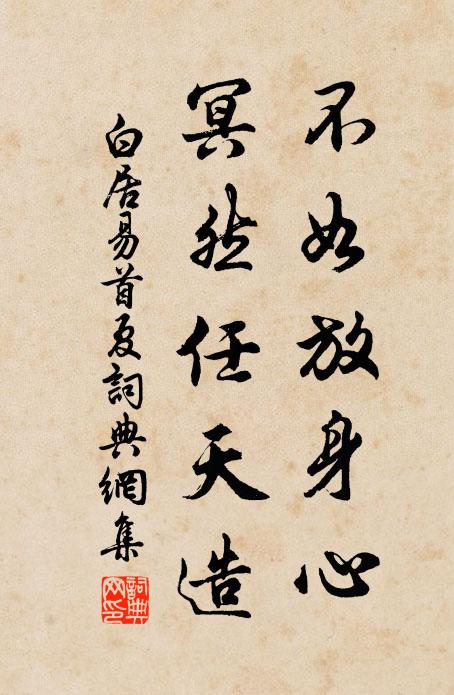 不如放身心
冥然任天造
白居易首夏詞典網集
詞典網印